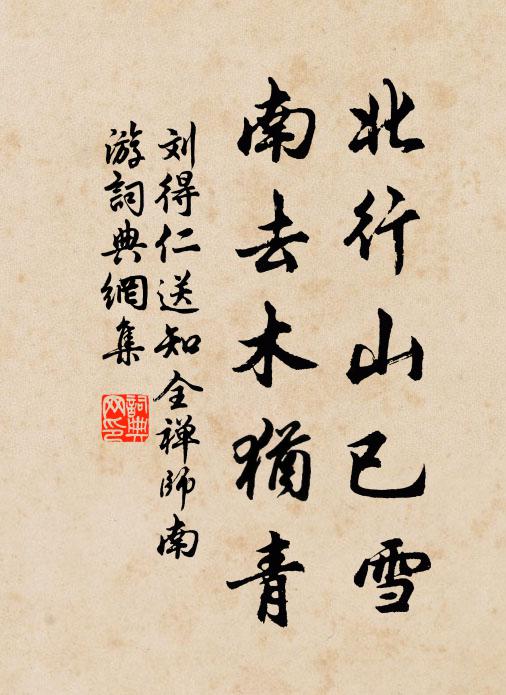 北行山已雪
南去木犹青
刘得仁送知全禅师南
游词典网集
词典
网印